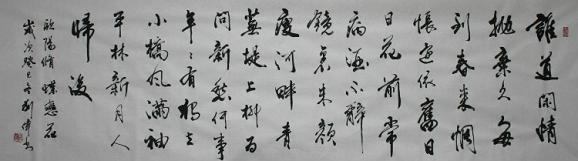 誰道閑情
拋棄久每
到春來惆
悵還依舊日
日花前常
病酒不辭
鏡裏朱顏
瘦河畔青
蕪堤上柳為
問新愁何事
年々有獨立
小橋風滿袖
平林新月人
歸後
歐陽修 蝶戀花
歲次癸巳冬劉